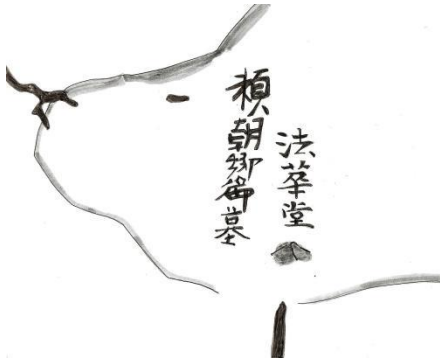 法華堂
頼朝郷御墓